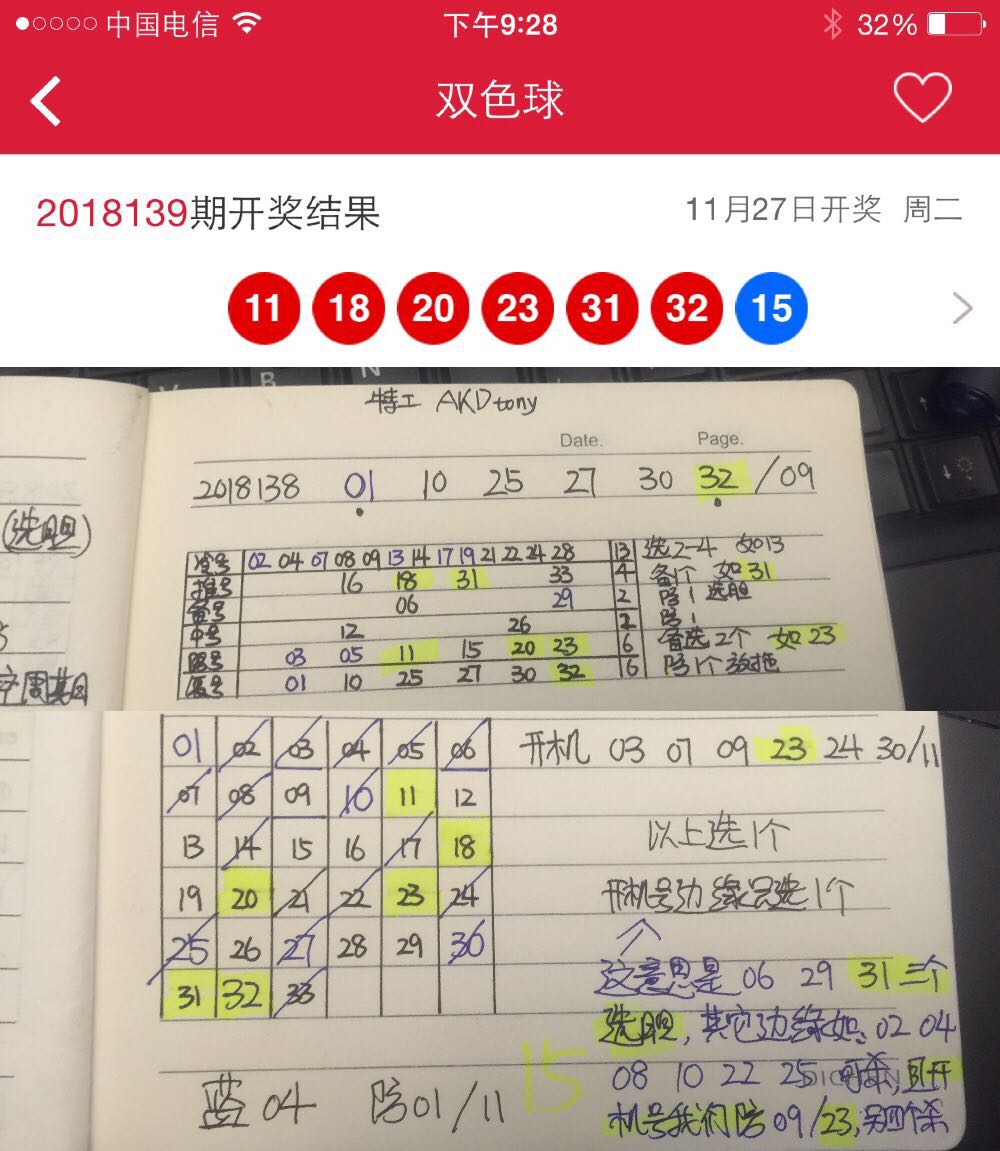 中国电信 下午9:28 32%
双色球
2018139期开奖结果 11月27日开奖 周二
11 18 20 23 31 32 15
B N
特工 AKDtony
Date. Page.
2018138 01 10 25 27 30 32/09
(选胆)
冷号 02 04 07 08 09 13 14 17 19 21 22 24 28 13 选2-4 如13
推号 16 18 31 33 4 备1个 如31
06 29 2 防1 选胆
中号 12 26 2 防1
03 05 11 15 20 23 6 首选2个 如23
01 10 25 27 30 32 6 防1个
周期
01 02 03 04 05 06 开机 03 07 09 23 24 30/11
07 08 09 10 11 12
13 14 15 16 17 18 以上选1个
19 20 21 22 23 24 开机号边缘号选1个
25 26 27 28 29 30
31 32 33
这意思是 06 29 31 三个
选胆,其它边缘如:02 04
08 10 22 25 可杀,且开
机号我们防09/23,另四个杀
蓝04 防01/11 15